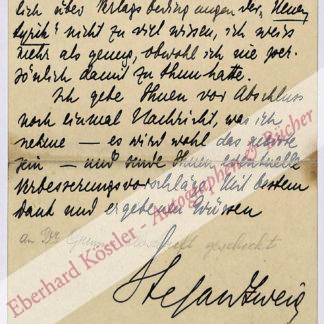 lich über Verlagsbedingungen der „Neuen
Lyrik" nicht zu viel wissen, ich weiss
mehr als genug, obwohl ich nie per-
sönlich damit zu thun hatte.
Ich gebe Ihnen vor Abschluss
noch einmal Nachricht, was ich
nehme – es wird wohl das
sein – und sende Ihnen eventuelle
Verbesserungsvorschläge. Mit bestem
Dank und ergebenen Grüssen
an Dr geschickt
Stefan Zweig
Eberhard Köstler - Autographen & Bücher